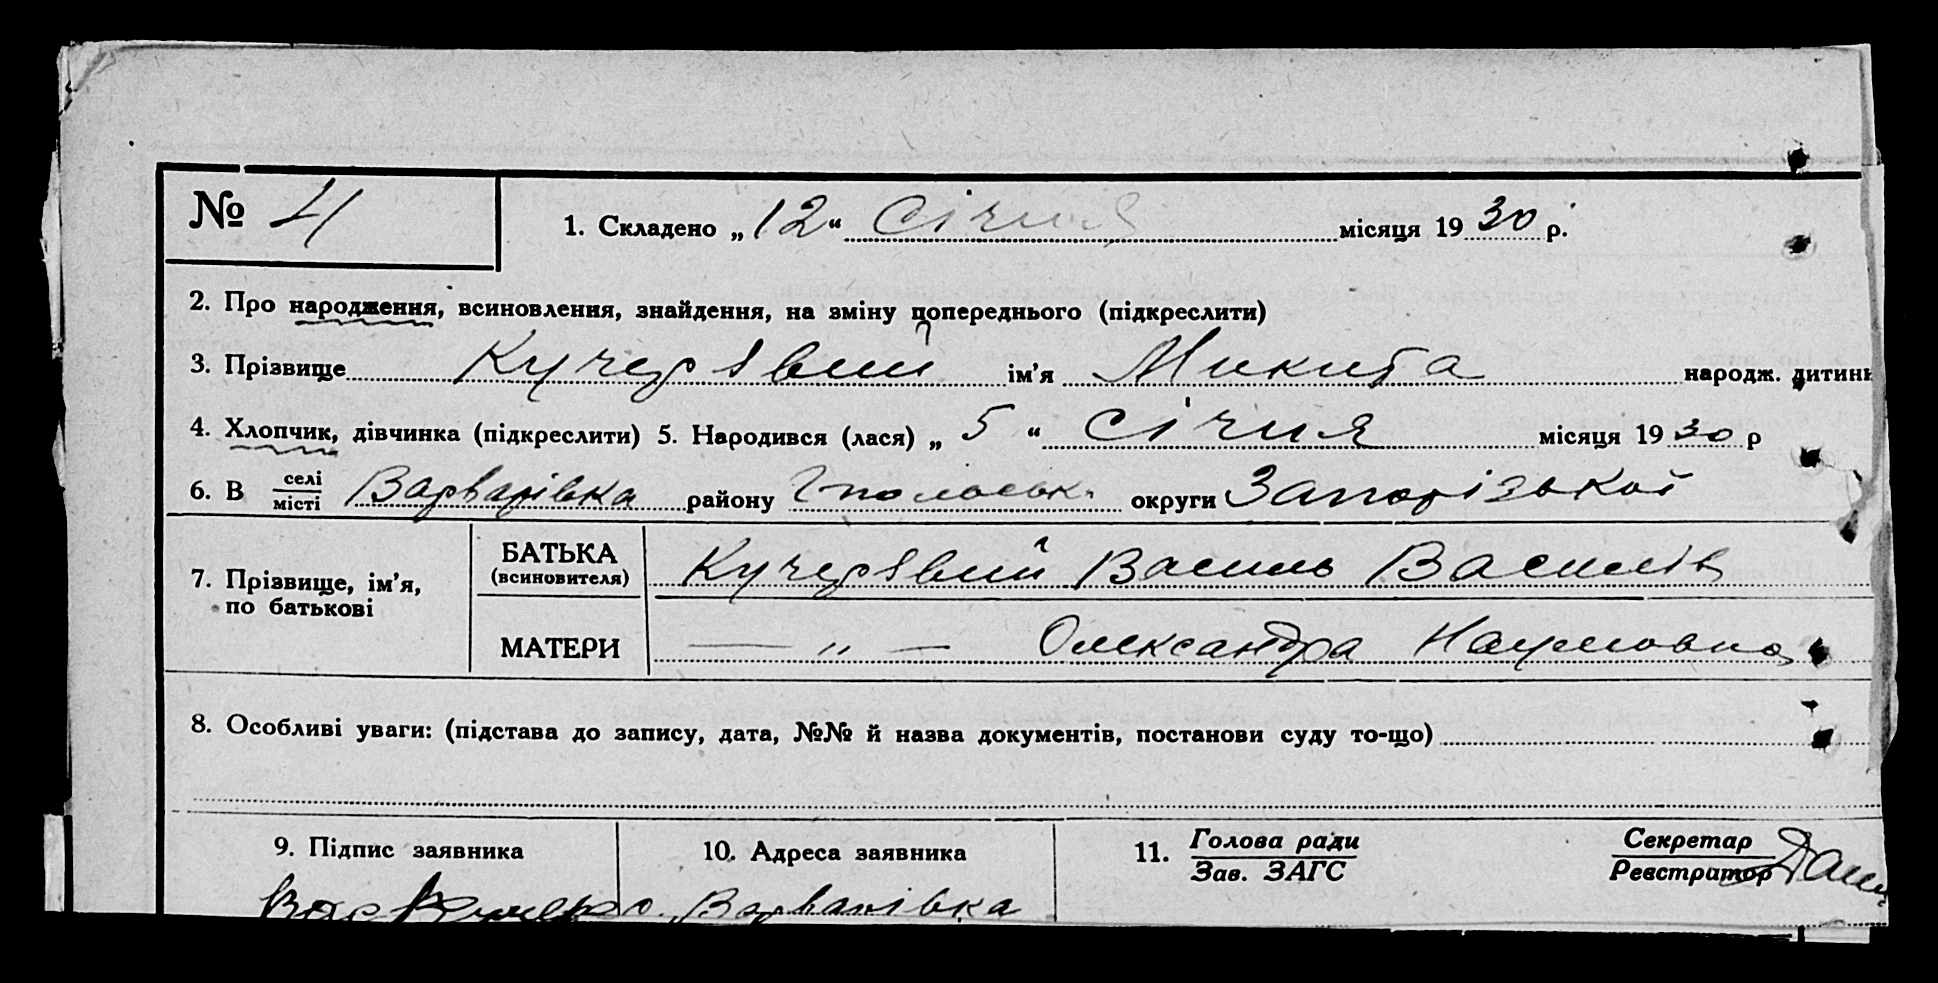 № 4
1. Складено „12“ Січня місяця 1930 р.
2. Про народження, всиновлення, знайдення, на зміну попереднього (підкреслити)
3. Прізвище Кучерявий ім’я Микита народж. дитини
4. Хлопчик, дівчинка (підкреслити) 5. Народився (лася) „5“ Січня місяця 1930 р
6. В селі Варварівка району округи Запорізької
місті
7. Прізвище, ім’я, по батькові
БАТЬКА (всиновителя) Кучерявий Василь Василів
МАТЕРИ — „ — Олександра Наумовна
8. Особливі уваги: (підстава до запису, дата, №№ й назва документів, постанови суду то-що)
9. Підпис заявника 10. Адреса заявника 11. Голова ради Секретар
Зав. ЗАГС Реєстратор
с. Варварівка